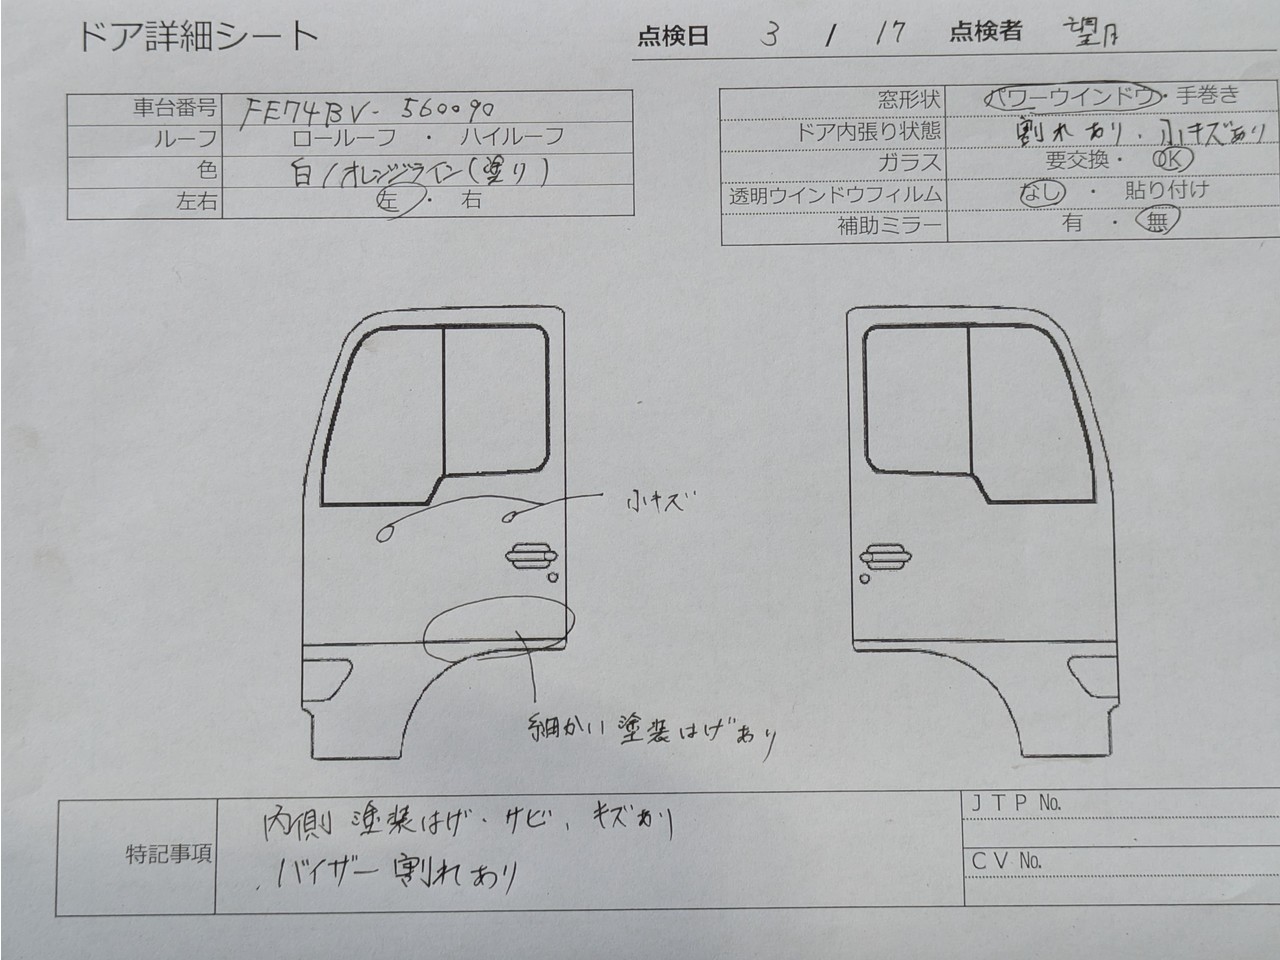 ドア詳細シート
点検日 3 / 17 点検者 望月
車台番号 FE74BV-560090
ルーフ ロールーフ ・ ハイルーフ
色 白/オレンジライン(塗り)
左右 左 ・ 右
窓形状 パワーウインドウ・手巻き
ドア内張り状態 割れあり、小キズあり
ガラス 要交換・ OK
透明ウインドウフィルム なし ・ 貼り付け
補助ミラー 有 ・ 無
小キズ
細かい塗装はげあり
特記事項
内側 塗装はげ・サビ、キズあり
バイザー割れあり
JTP No.
CV No.